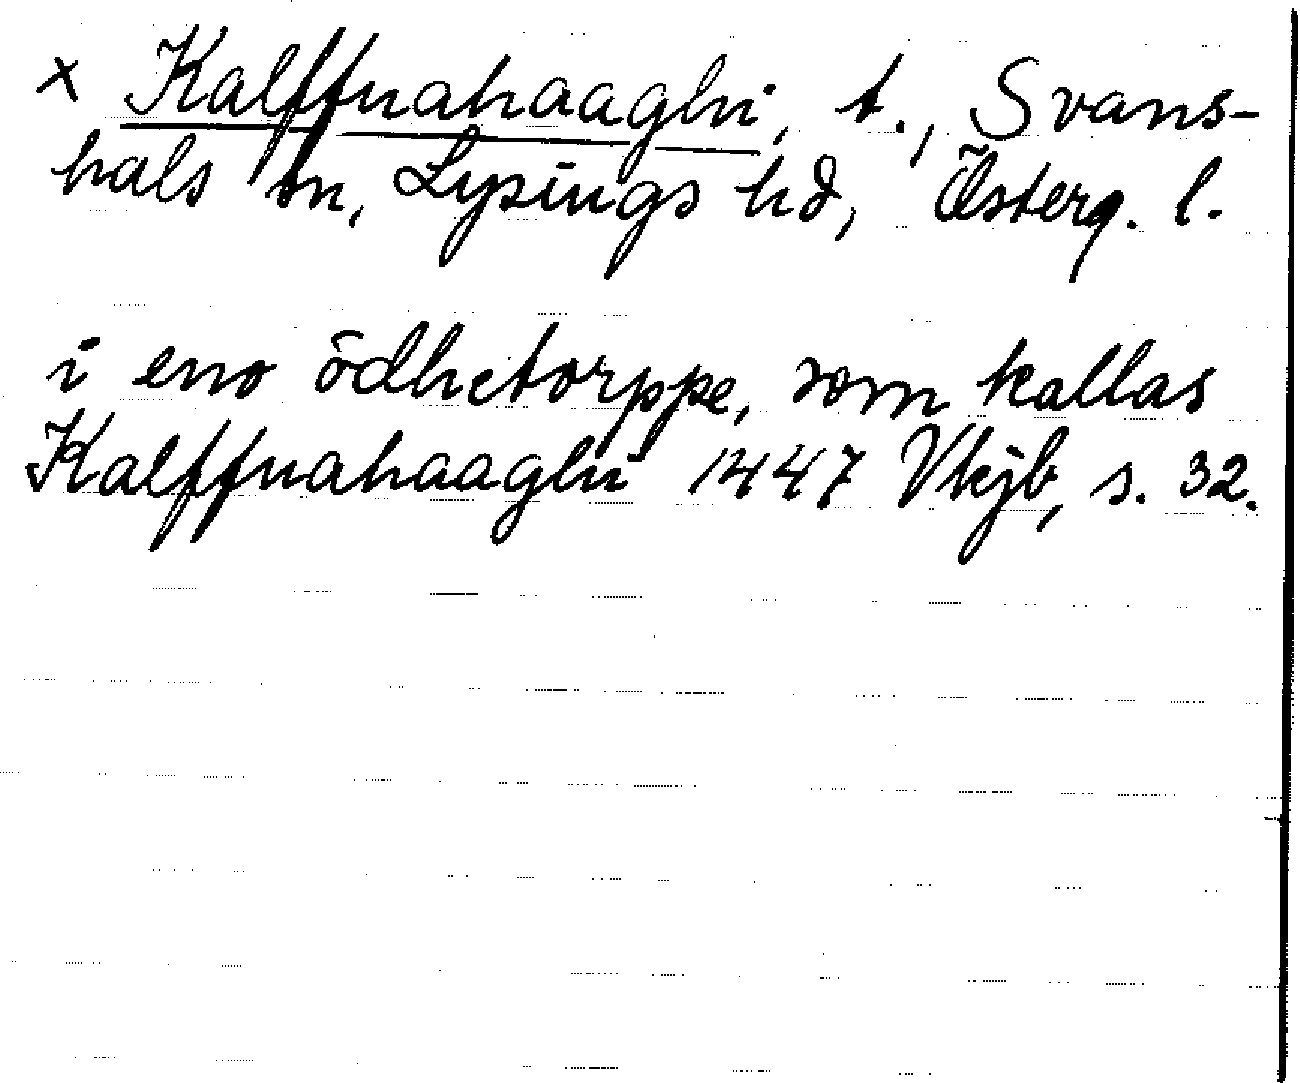 x Kalffnahaaghi, t., Svans-
hals sn, Lysings hd, Österg. l.
i eno ödhetorppe, som kallas
Kalffnahaaghi 1447 Vkjb, s. 32.